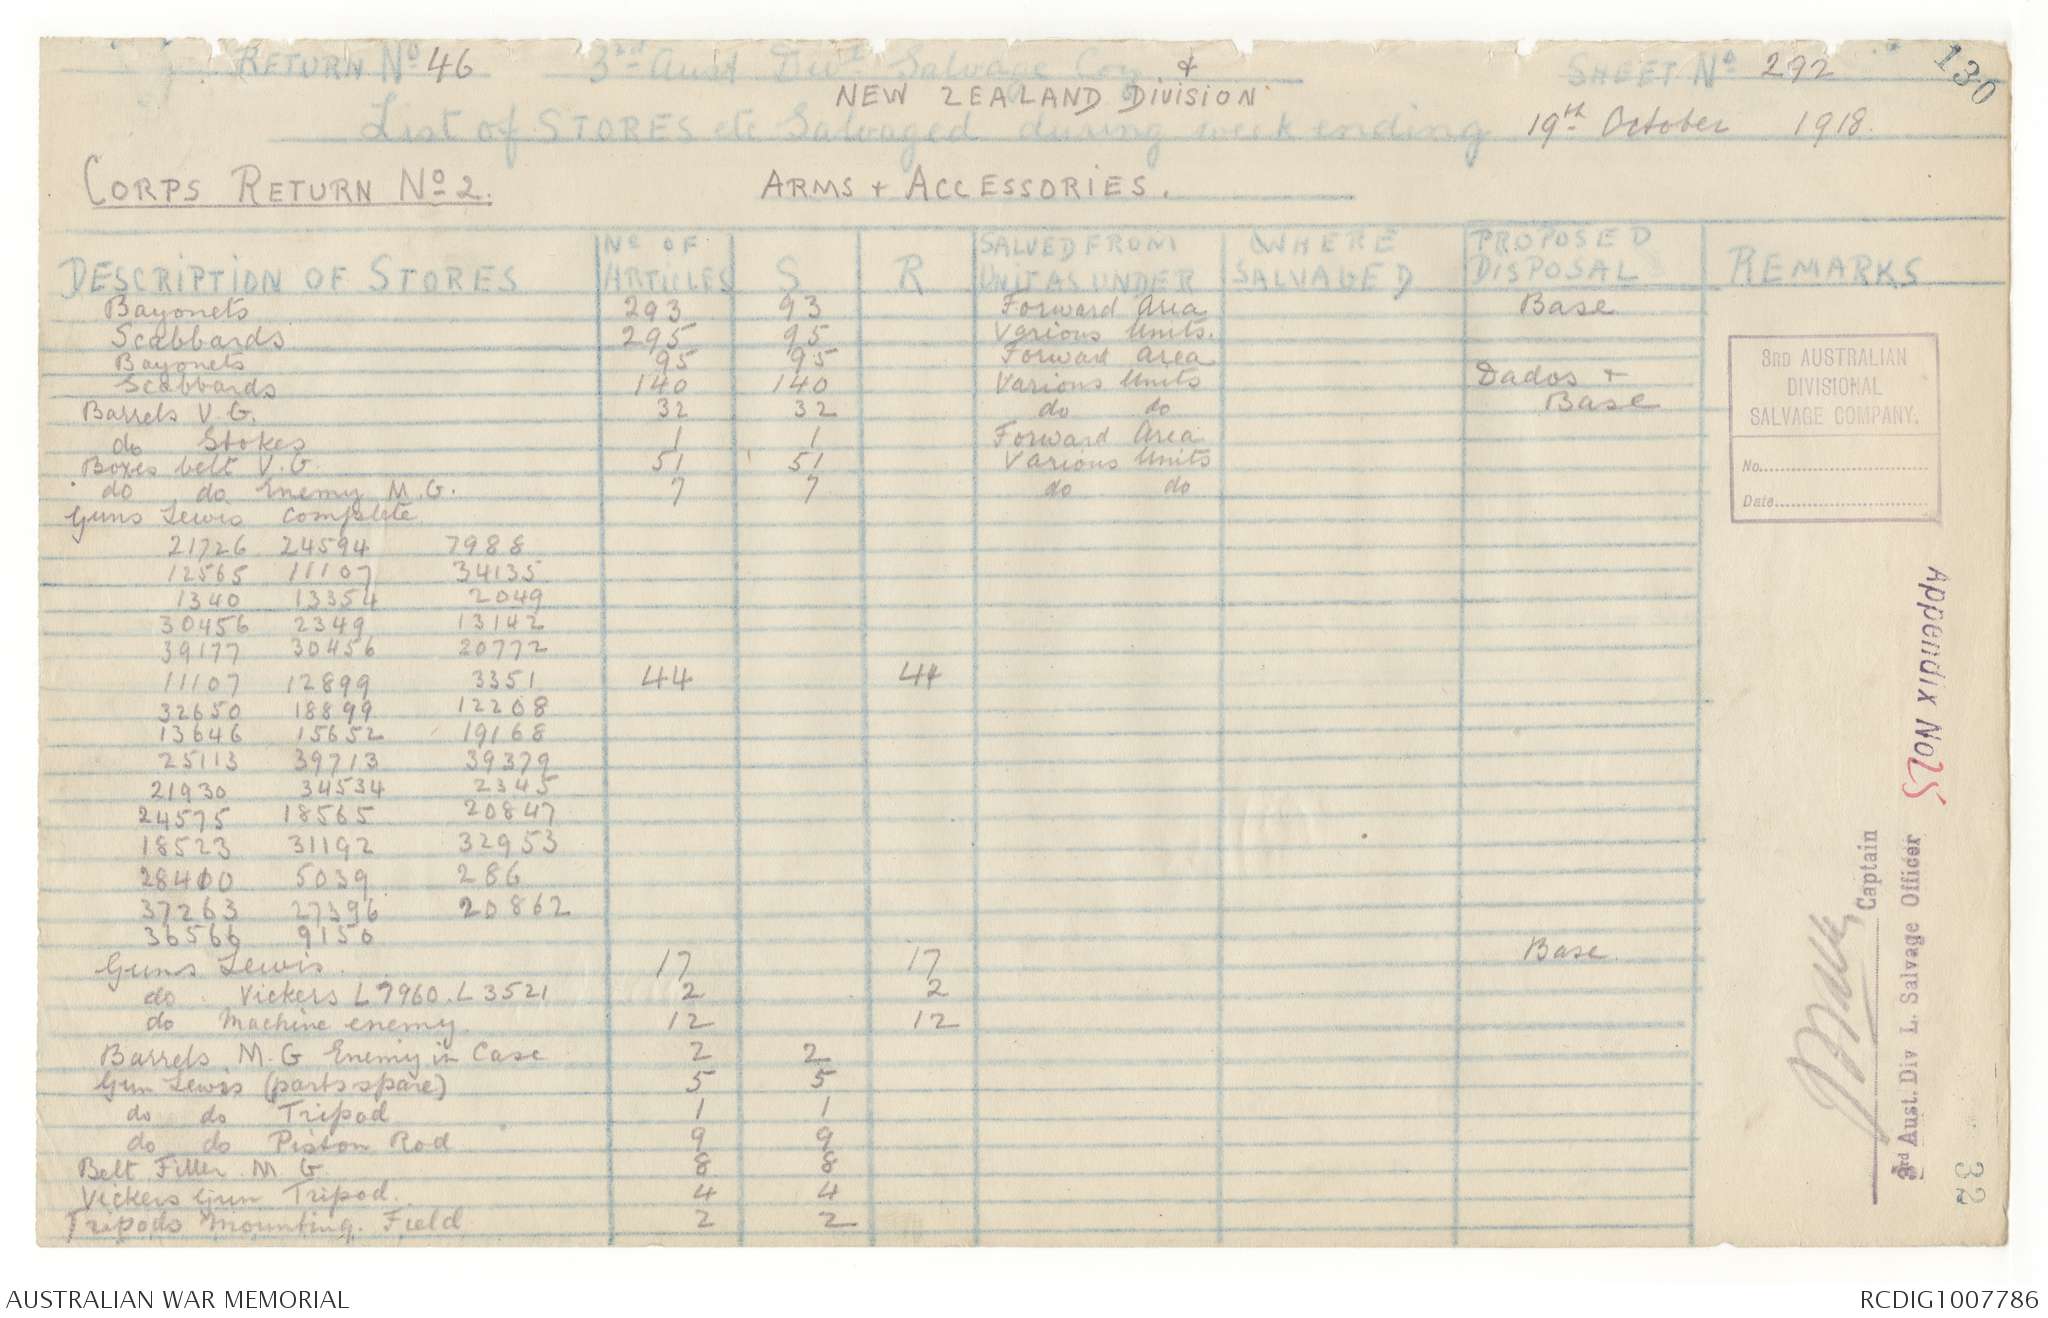 130
RETURN No 46 3rd Aust Divn Salvage Coy & SHEET No 292
NEW ZEALAND DIVISION
List of STORES etc Salvaged during week ending 19th October 1918.
CORPS RETURN No 2. ARMS + ACCESSORIES.
DESCRIPTION OF STORES No OF ARTICLES S R SALVED FROM UNIT AS UNDER WHERE SALVAGED PROPOSED DISPOSAL REMARKS
Bayonets 293 93 Forward Area Base
Scabbards 295 95 Various Units.
Bayonets 95 95 Forward Area
Scabbards 140 140 Various Units Dados +
Barrels V.G. 32 32 do do Base
do Stokes 1 1 Forward Area
Boxes belt V.G. 51 51 Various Units
do do Enemy M.G. 7 7 do do
Guns Lewis complete
21726 24594 7988
12565 11107 34135
1340 13354 2049
30456 2349 13142
39177 30456 20772
11107 12899 3351 44 44
32650 18899 12208
13646 15652 19168
25113 39713 39379
21930 34534 2345
24575 18565 20847
18523 31192 32953
28400 5039 286
37263 27396 20862
36566 9150
Guns Lewis. 17 17 Base
do. Vickers L7960. L3521 2 2
do Machine enemy 12 12
Barrels M.G Enemy in Case 2 2
Gun Lewis (parts spare) 5 5
do do Tripod 1 1
do do Piston Rod 9 9
Belt Filler M G 8 8
Vickers Gun Tripod. 4 4
Tripods Mounting. Field 2 2
3RD AUSTRALIAN
DIVISIONAL
SALVAGE COMPANY.
No.
Date
Appendix No 25
Captain
3rd Aust. Div L. Salvage Officer
32
AUSTRALIAN WAR MEMORIAL RCDIG1007786